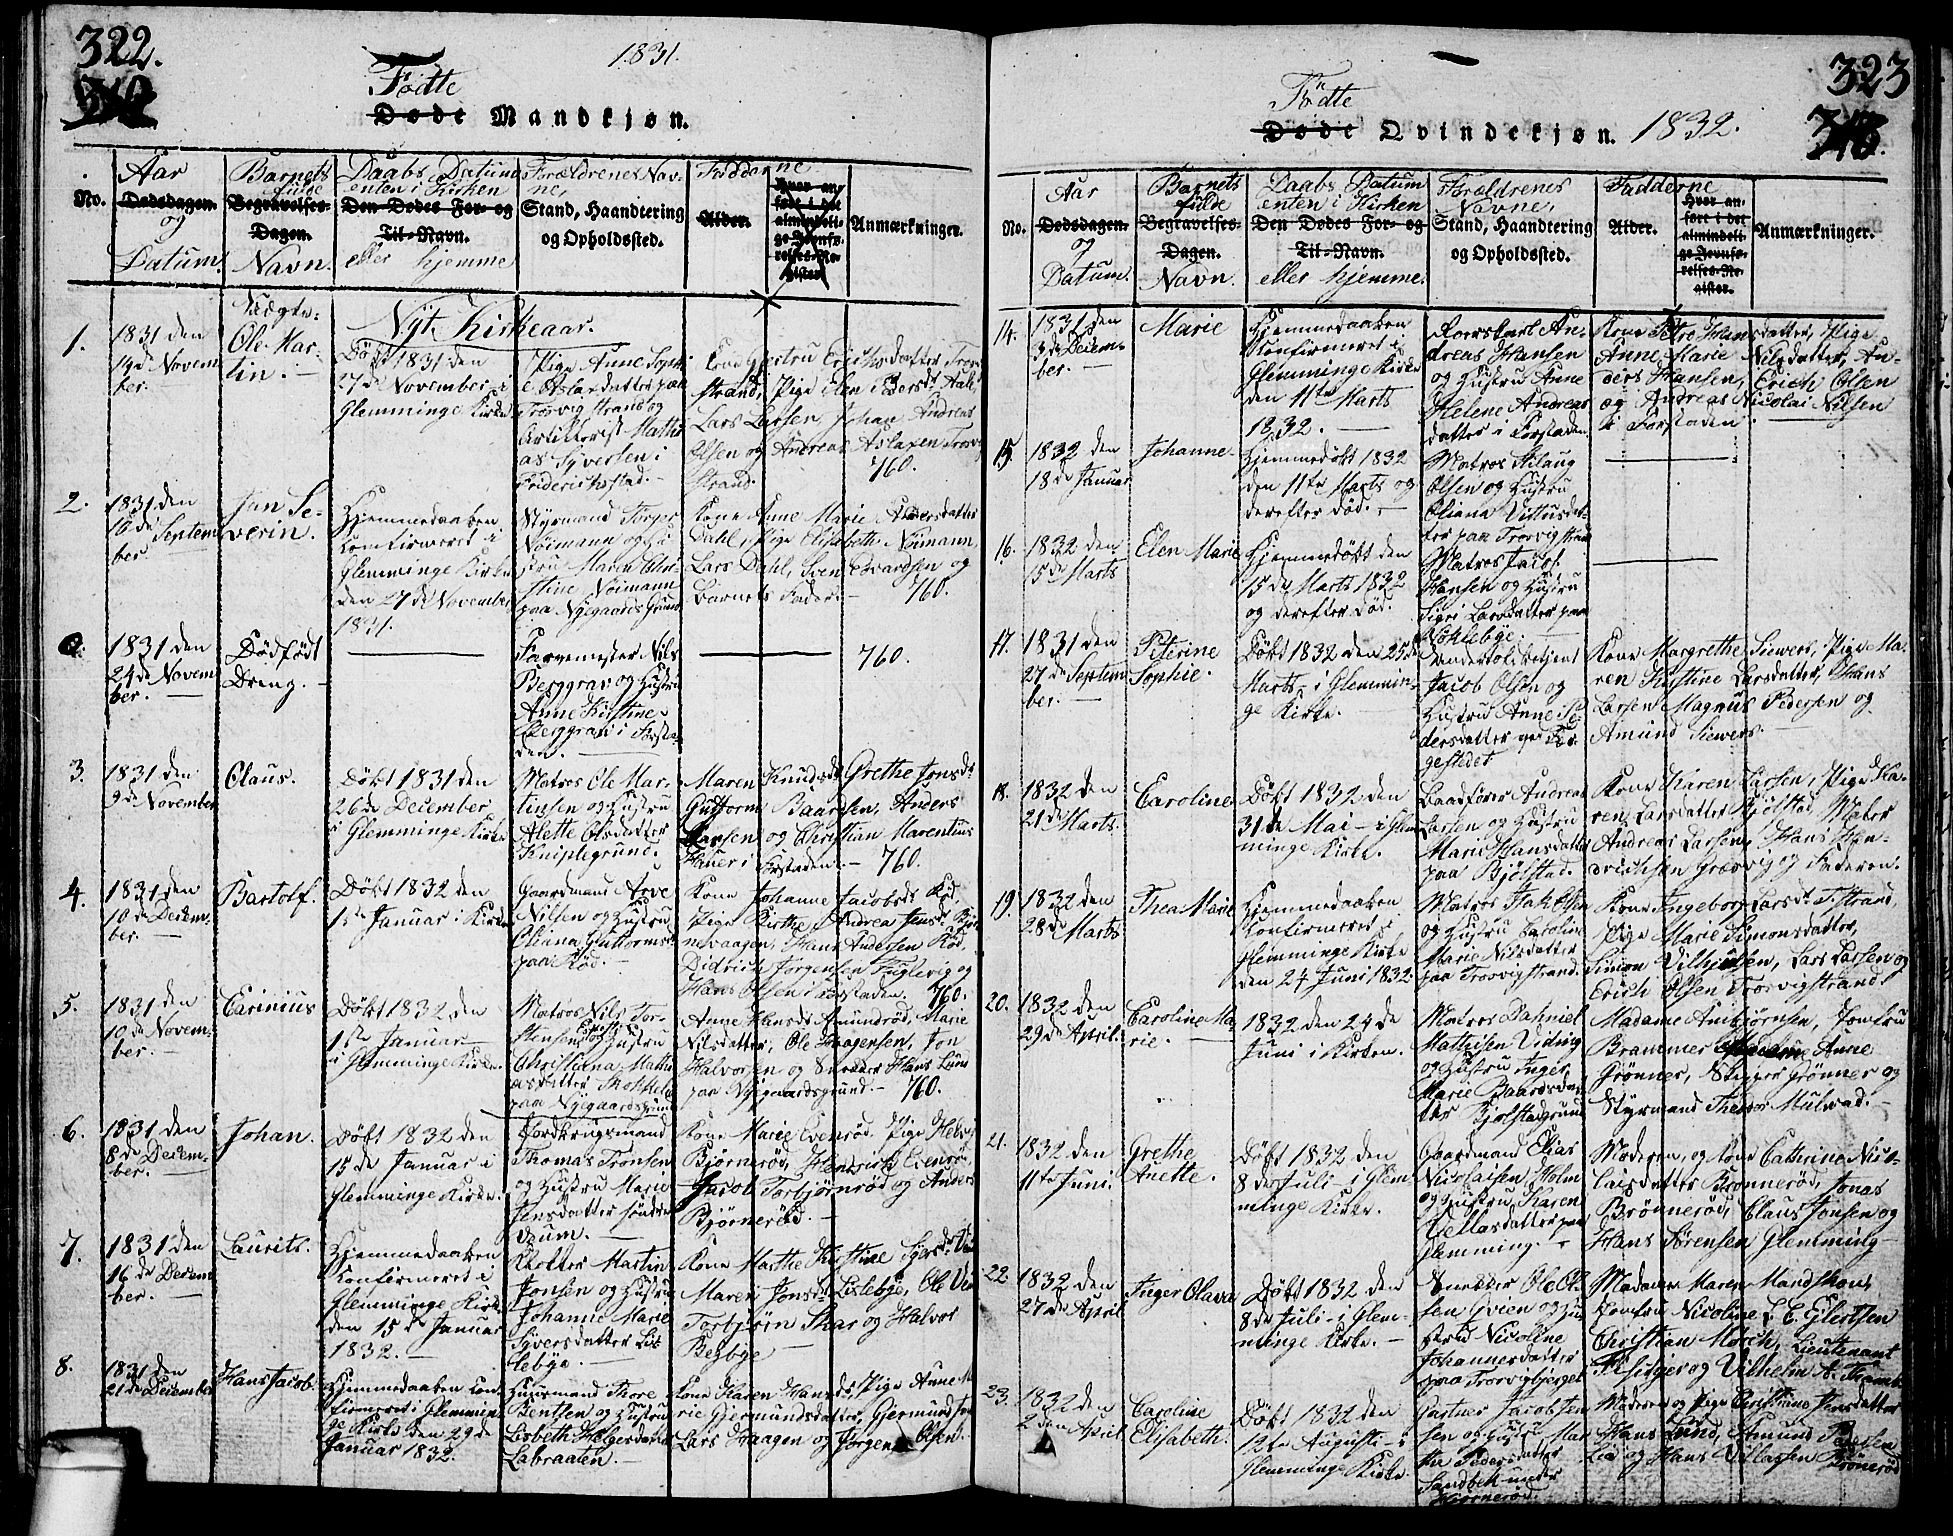 322.
1831.
Födte
Døde Mandkjøn.
No.
Aar
Dødsdagen.
og
Datum.
Barnets
fulde
Begravelses-
Dagen.
Navn.
Daabs Datum
enten i Kirken
Den Dødes For- og
Til-Navn.
eller hjemme
Forældrenes Nav-
ne,
Stand, Haandtering
og Opholdssted.
Fadderne
Alder.
Hvor an-
ført i det
almindeli-
ge Jevnfø-
relses-Re-
gister.
Anmærkninger.
Nyt Kirkeaar.
1.
1831 den
Novem
ber.
Ole Mar-
tin.
Døbt 1831 den
27de November i
Glemminge Kirke
Pige Anne Sophi
e Aslaxdatter paa
Trosvigstrand og
Artillerist Mathi
as Syversen i
Friderichstad.
Lars Larsen, Johan Andreas
Olsen og Andreas Aslaxen Trosvig
Strand.
760.
2.
1831 den
Septem
ber.
Jan Se-
verin.
Hjemmedaaben
Confirmeret i
Glemminge Kirke
den 27de November
1831.
Styrmand Jørgen
Nöimann og Hu
stru Maren Chri
stine Nöimann
paa Nygaards Grund
Kone Anne Marie Andersdatter
Dahl, Pige Elisabeth Nöimann,
Lars Dahl, Sven Edvardsen og
Barnets Fader.
760.
0.
1831 den
24de Novem
ber.
Dødfødt
Dreng.
Farvemester Nils
Berggrav og Hustru
Anne Kirstine
Berggrav i Forsta-
den.
760.
3.
1831 den
9de November
Claus.
Döbt 1831 den
26de December
i Glemminge Kirke
Matros Ole Mar-
tinsen og Hustru
Alette Olsdatter
Kniplegrund.
Maren Knudsdr Grethe Jonsdr
Guttorm Baarsen, Anders
Hansen og Christian Marentius
Hauer i Forstaden.
760.
4.
1831 den
10de Decem-
ber.
Bartolf.
Döbt 1832 den
1ste Januar i Kirken
Gaardmand Arve
Nilsen og Hustru
Eliana Guttormsdr
paa Röd.
Kone Johanne Jacobsdr Röd,
Pige Birthe Andrea Jensdr
Hans Andersen Röd,
Didrich Jörgensen Fuglevig og
Hans Olsen i Forstaden.
760.
5.
1831 den
10de Novem-
ber.
Carinius
Döbt 1832 den
1ste Januar
i Glemminge Kirke.
Matros Nils Tor-
stensen og Hustru
Christiana Mathi
asdatter
paa Nygaardsgrund
Anne Hansdr Amundröd, Marie
Nilsdatter, Ole Haagensen, Jon
Halvorsen og Snedker Hans Lund
paa Nygaardsgrund.
760.
6.
1831 den
8de Decem-
ber.
Johan.
Döbt 1832 den
15de Januar i
Glemminge Kirke.
Jordbrugsmand
Thomas Tronsen
og Hustru Marie
Jensdatter söndre
Kone Marie Evenröd, Pige Helvig
Björneröd, Hendrich Evenröd,
Jacob Torbjörnröd og Anders
Björneröd.
7.
1831 den
16de Decem
ber.
Laurits.
Hjemmedaaben
Confirmeret i
Glemminge Kirke
den 15de Januar
1832.
Martin
Jonsen og Hustru
Johanne Marie
Syversdatter Lis
lebye.
Kone Marthe Kirstine
Maren Jonsdr Lislebye, Ole
Torbjörn Skar og Halvor
Begbye
8.
1831 den
21de December
Hans Jacob.
Hjemmedaaben Con-
firmeret i Glemmin
ge Kirke den 29de
Januar 1832.
Huusmand Thore
Bentsen og Hustru
Lisbeth Holgersdatter
Labraaten.
Kone Karen Hansdr, Pige Anne Ma
rie Gjermundsdatter, Gjermund
Lars Haagen og Jörgen Olsen.
323
Födte
Døde Qvindekjøn. 1832.
No.
Aar
Dødsdagen.
og
Datum.
Barnets
fulde
Begravelses-
Dagen.
Navn.
Daabs Datum
enten i Kirken
Den Dødes For- og
Til-Navn.
eller hjemme.
Forældrenes
Navne,
Stand, Haandtering
og Opholdssted.
Fadderne
Alder.
Hvor an-
ført i det
almindeli-
ge Jevnfø-
relses-Re-
gister.
Anmærkninger.
14.
1831 den
3de Decem-
ber.
Marie
Hjemmedaaben
Confirmeret i
Glemminge Kirke
den 11te Marts
1832.
Andreas Hansen
og Hustru Anne
Helene Andreas
datter i Forstaden.
Anne Marie Nilsdatter, An-
ders Hansen, Erich Olsen
og Andreas Nicolai Nilsen
i Forstaden.
15.
1832 den
18de Januar
Johanne.
Hjemmedöbt 1832
den 11te Marts og
derefter död.
Matros
Olsen og Hustru
Eliana Vittusdat-
ter paa Trosvigstrand
16.
1832 den
15de Marts
Elen Marie
Hjemmedöbt den
15de Marts 1832
og derefter död.
Matros Jacob
Hansen og Hustru
Sigri Larsdatter paa
Noklebye.
17.
1831 den
27de Septem
ber.
Peterine
Sophie.
Döbt 1832 den 25de
Marts i Glemmin-
ge Kirke.
Jacob Olsen og
Hustru Anne Pe-
dersdatter
Kone Margrethe Siewers, Pige Ma-
ren Kirstine Larsdatter, Hans
Larsen, Magnus Pedersen og
Amund Siewers.
18.
1832 den
21de Marts
Caroline
Döbt 1832 den
31de Mai i Glem
minge Kirke.
Baadförer Andreas
Larsen og Hustru
Marie Hansdatter
paa Bjölstad.
Kone Karen Larsen, Pige Ka-
ren Larsdatter Bjölstad, Matros
Andreas Larsen, Hans Hen-
drichsen og Faderen.
19.
1832 den
28de Marts
Thea Marie
Hjemmedaaben
Confirmeret i
Glemminge Kirke
den 24 Juni 1832
Matros Isak Olsen
og Hustru Caroline
Marie Nilsdatter
paa Trosvigstrand.
Kone Ingeborg Larsdr T.strand,
Pige Marie Simonsdatter,
Simon Vilhjelmsen, Lars Larsen og
Erich Olsen Trosvigstrand.
20.
1832 den
29de April.
Caroline Ma-
rie.
1832 den 24de
Juni i Kirken.
Matros Daniel
Mathisen Viding
og Hustru Inger
Marie Baardsdat
ter Bjölstadgrund
Madame Ambjörnsen, Jomfru
Brammer, Anne
Grönner, Skipper Grönner og
Styrmand Theodor Mulvad.
21.
1832 den
11te Juni.
Grethe
Anette.
Döbt 1832 den
8de Juli i Glem
minge Kirke.
Gaardmand Elias
Nicolaisen Holm
og Hustru Karen
paa
Glemming.
Moderen, og Kone Cathrine Nico-
laisdatter Brönneröd, Jonas
Brönneröd, Claus Jonsen og
Hans Sörensen Glemming
22
1832 den
27de April
Inger Olava
Döbt 1832 den
8de Juli i Glem-
minge Kirke.
Snekker Ole Ol-
sen og Hu-
stru Nicoline
Johannesdatter
paa Trosvigbjerget
Madame Maren Mandskow,
Jomfru Nicoline L. E. Eilertsen
Christian Morch, Lieutenant
og Vilhelm A.
23.
1832 den
2den April
Caroline
Elisabeth.
Döbt 1832 den
12te Augusti i
Glemminge Kirke
Gartner Jacob
sen og Hustru Mar
the Pedersdatter
Sandbek under
Björneröd.
Moderen og Pige Christiane Jensdatter
Hans Lund, Amund
Lie og Hans Villassen Brönneröd